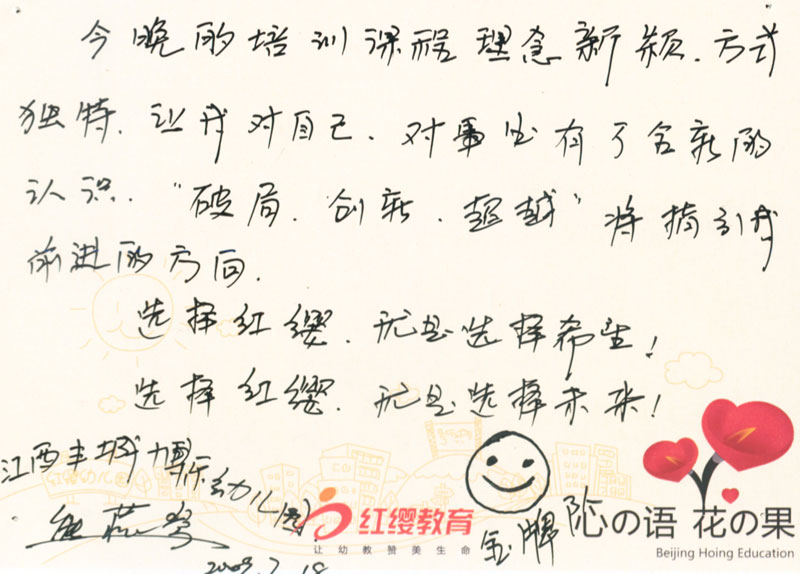 今晚的培训课程理念新颖、方式
独特,让我对自己、对事业有了全新的
认识。“破局、创新、超越”将指引我
前进的方向。
选择红缨,就是选择希望!
选择红缨,就是选择未来!
江西丰城 幼儿园
红缨教育
让幼教赞美生命
金牌
心の语 花の果
Beijing Hoing Education
2009.7.18